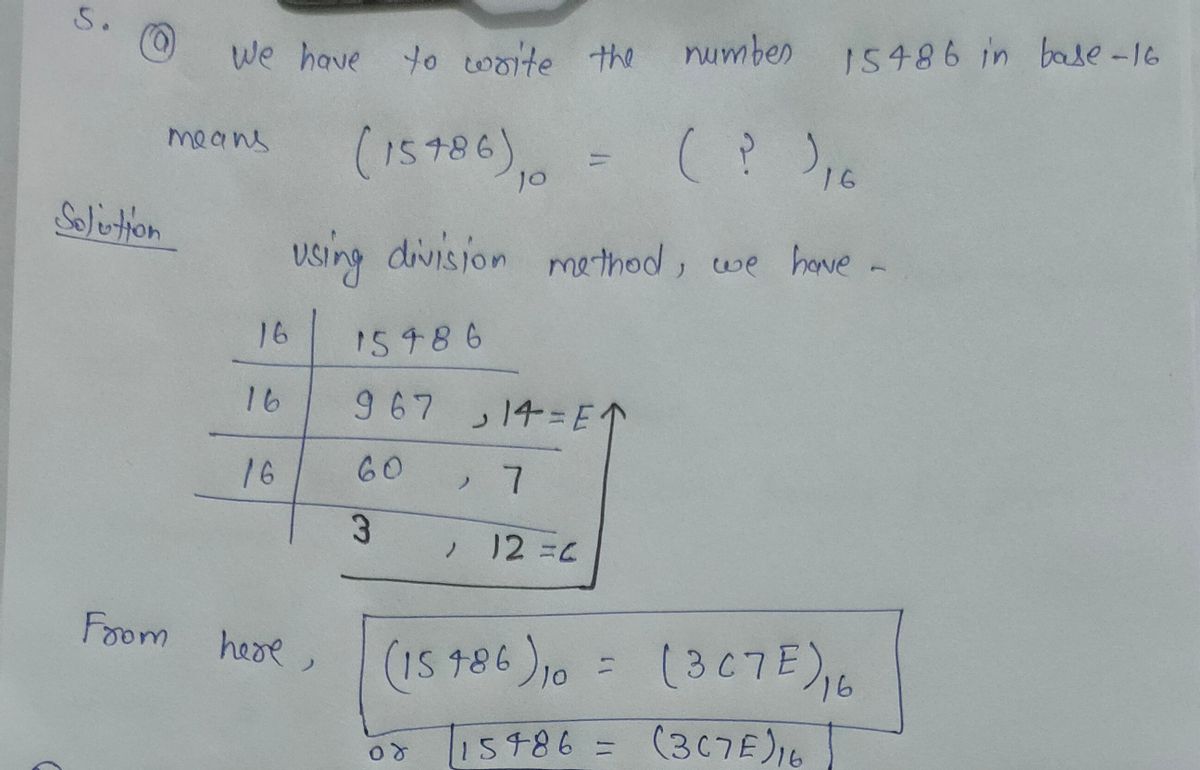 5. (a) We have to write the number 15486 in base-16
means (15486)10 = ( ? )16
Solution
using division method, we have -
16 | 15486
16 | 967 , 14=E
16 | 60 , 7
3 , 12=C
From here, (15486)10 = (3C7E)16
or 15486 = (3C7E)16